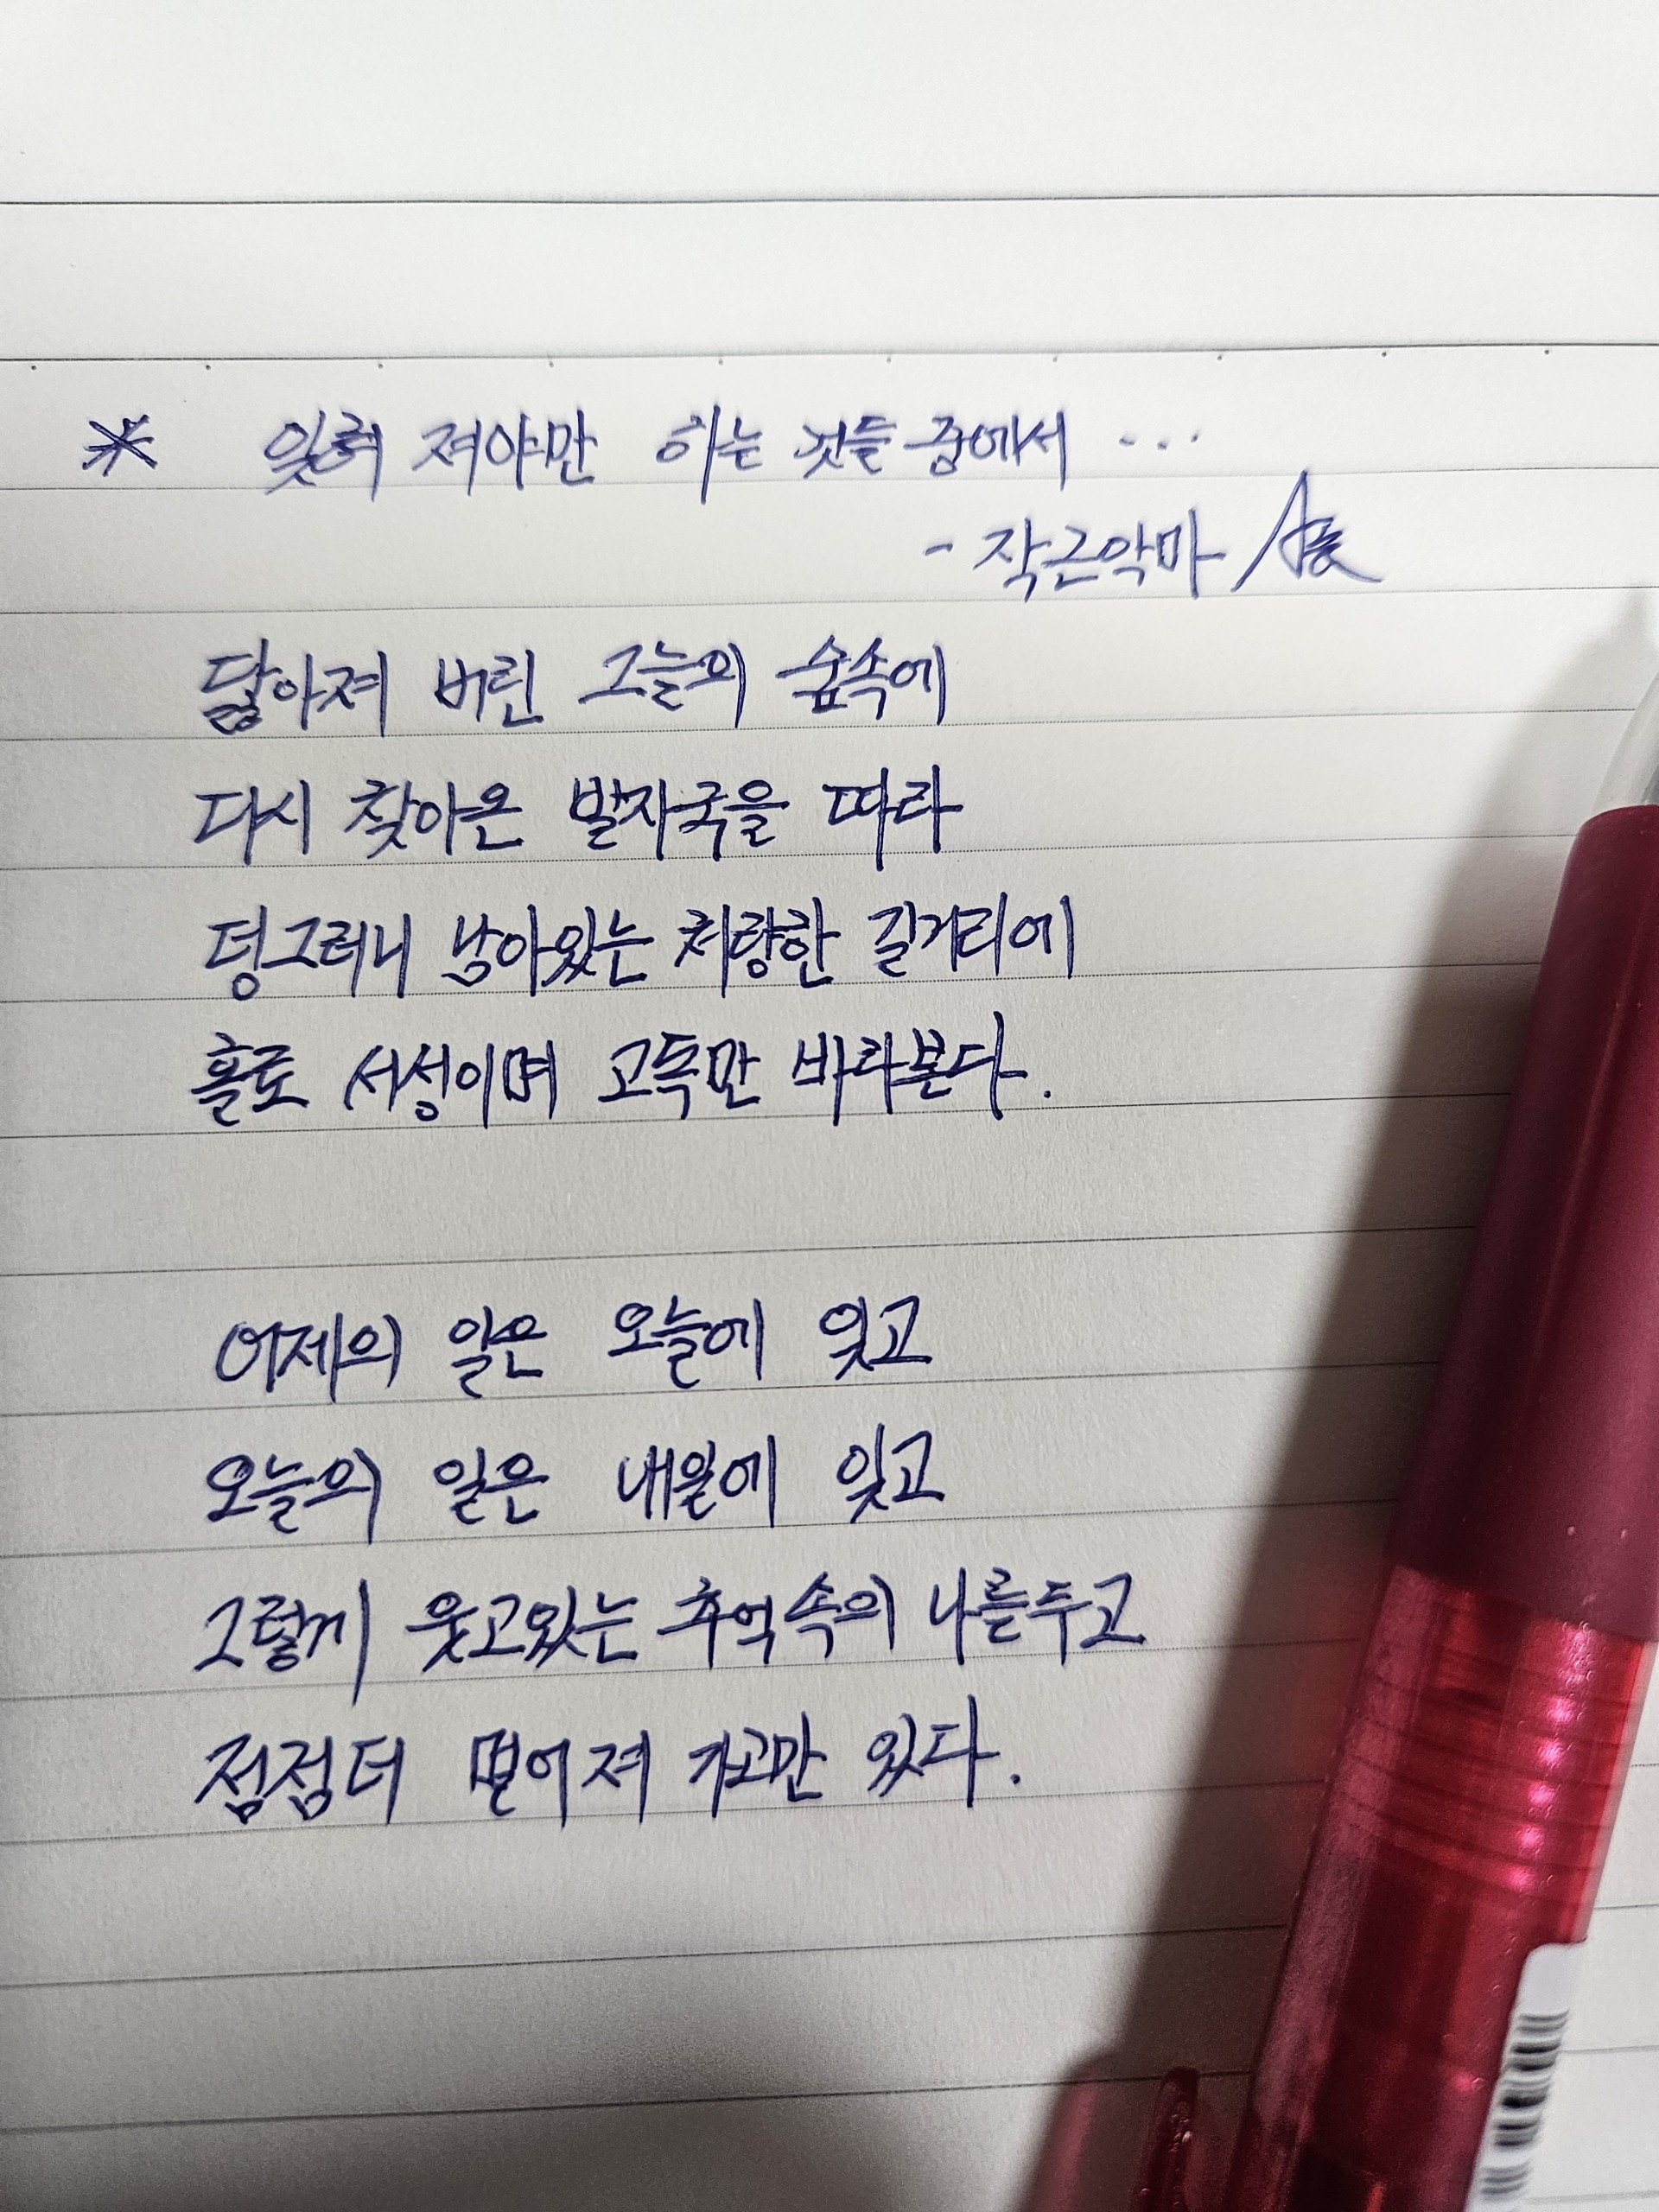 ※ 잊혀 져야만 하는 것들 중에서 ...
- 작은악마
닮아져 버린 그늘의 숲속에
다시 찾아온 발자국을 따라
덩그러니 남아있는 처량한 길거리에
홀로 서성이며 고독만 바라본다.
어제의 일은 오늘에 잊고
오늘의 일은 내일에 잊고
그렇게 웃고있는 추억속의 나를두고
점점더 멀어져 가고만 있다.